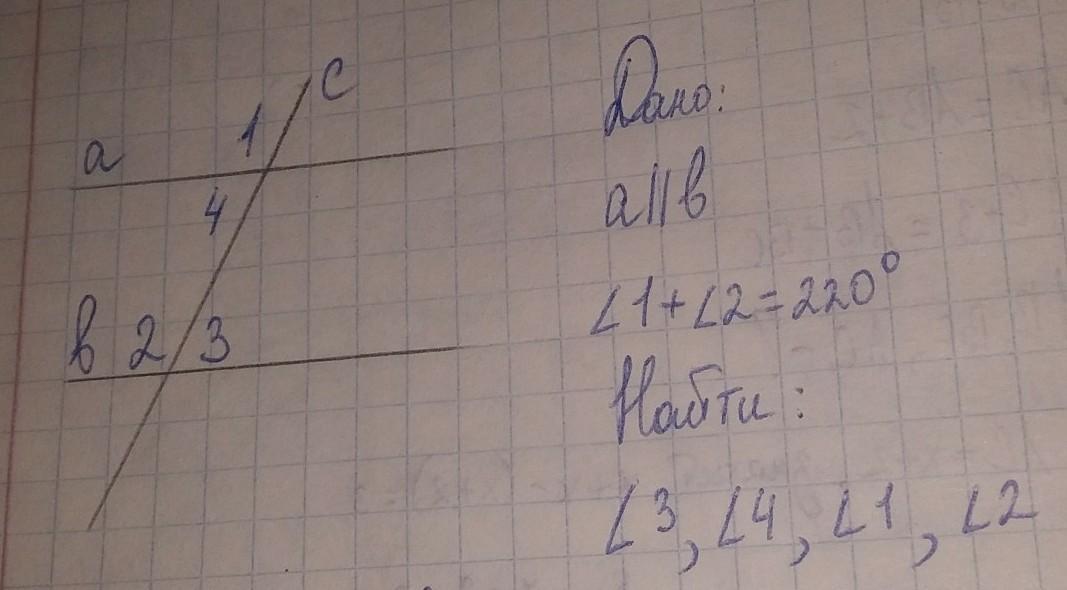 c
1
a
4
в 2 3
Дано:
a||в
∠1+∠2=220°
Найти:
∠3, ∠4, ∠1, ∠2